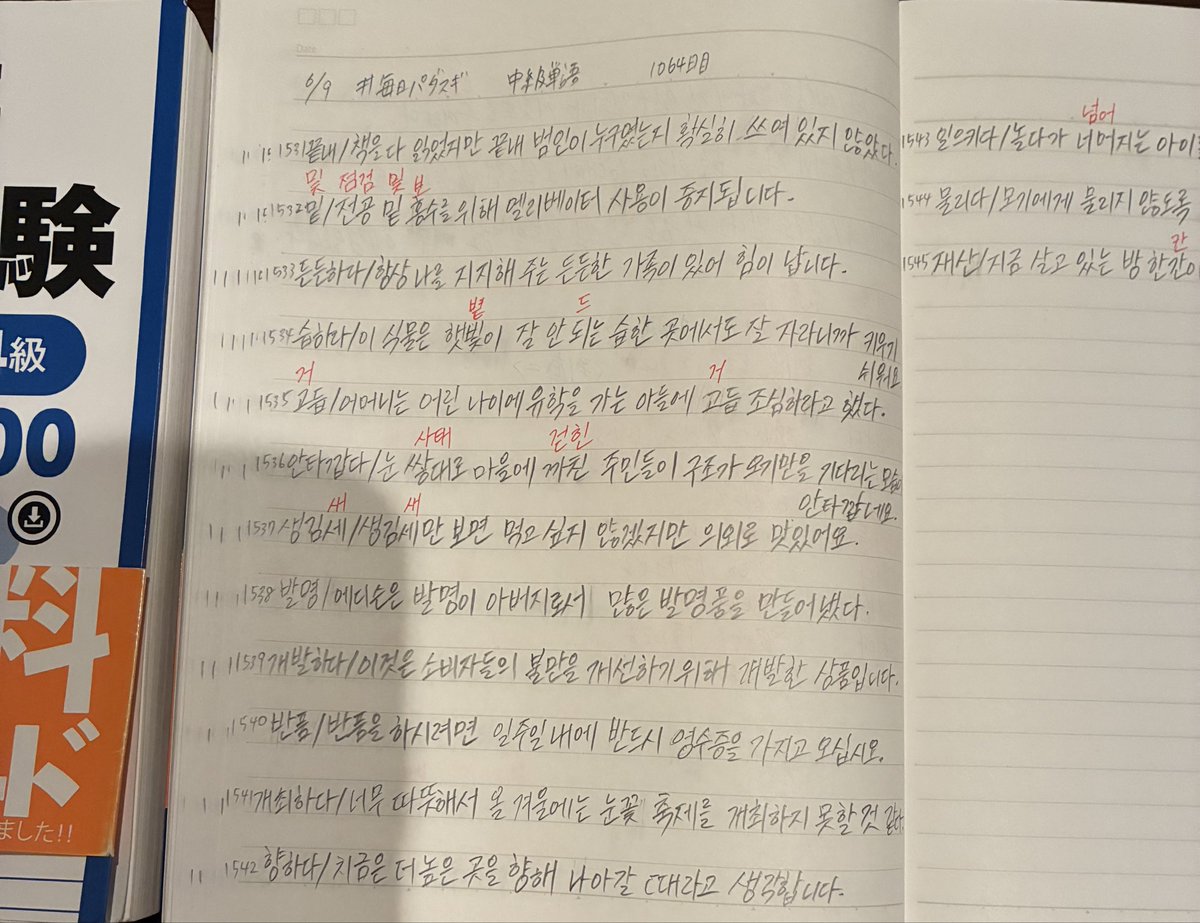 験
級
00
料
ド
ました!!
Date
6/9 #毎日パダスギ 中級単語 1064日目
1531 끝내/책을 다 읽었지만 끝내 범인이 누구였는지 확실히 쓰여 있지 않았다.
및 점검 및 보
1532 밑/전공 밑 홍수를 위해 엘리베이터 사용이 중지됩니다.
1533 든든하다/항상 나를 지지해 주는 든든한 가족이 있어 힘이 납니다.
볕 드
1534 습하다/이 식물은 햇빛이 잘 안 되는 습한 곳에서도 잘 자라니까 키우기
쉬워요
거 거
1535 고듭/어머니는 어린 나이에 유학을 가는 아들에 고듭 조심하라고 했다.
사태 갇힌
1536 안타깝다/눈 쌀대로 마을에 까친 주민들이 구조가 오기만을 기다리는 모습이
안타깝네요.
새 새
1537 생김세/생김세만 보면 먹고 싶지 않겠지만 의외로 맛있어요.
1538 발명/에디슨은 발명이 아버지로서 많은 발명품을 만들어냈다.
1539 개발하다/이것은 소비자들의 불만을 개선하기 위해 개발한 상품입니다.
1540 반품/반품을 하시려면 일주일 내에 반드시 영수증을 가지고 오십시오.
1541 개최하다/너무 따뜻해서 올 겨울에는 눈꽃 축제를 개최하지 못할 것 같다
1542 향하다/지금은 더 높은 곳을 향해 나아갈 때라고 생각합니다.
넘어
1543 일으키다/놀다가 너머지는 아이
1544 물리다/모기에게 물리지 않도록
칸
1545 재산/지금 살고 있는 방 한간이